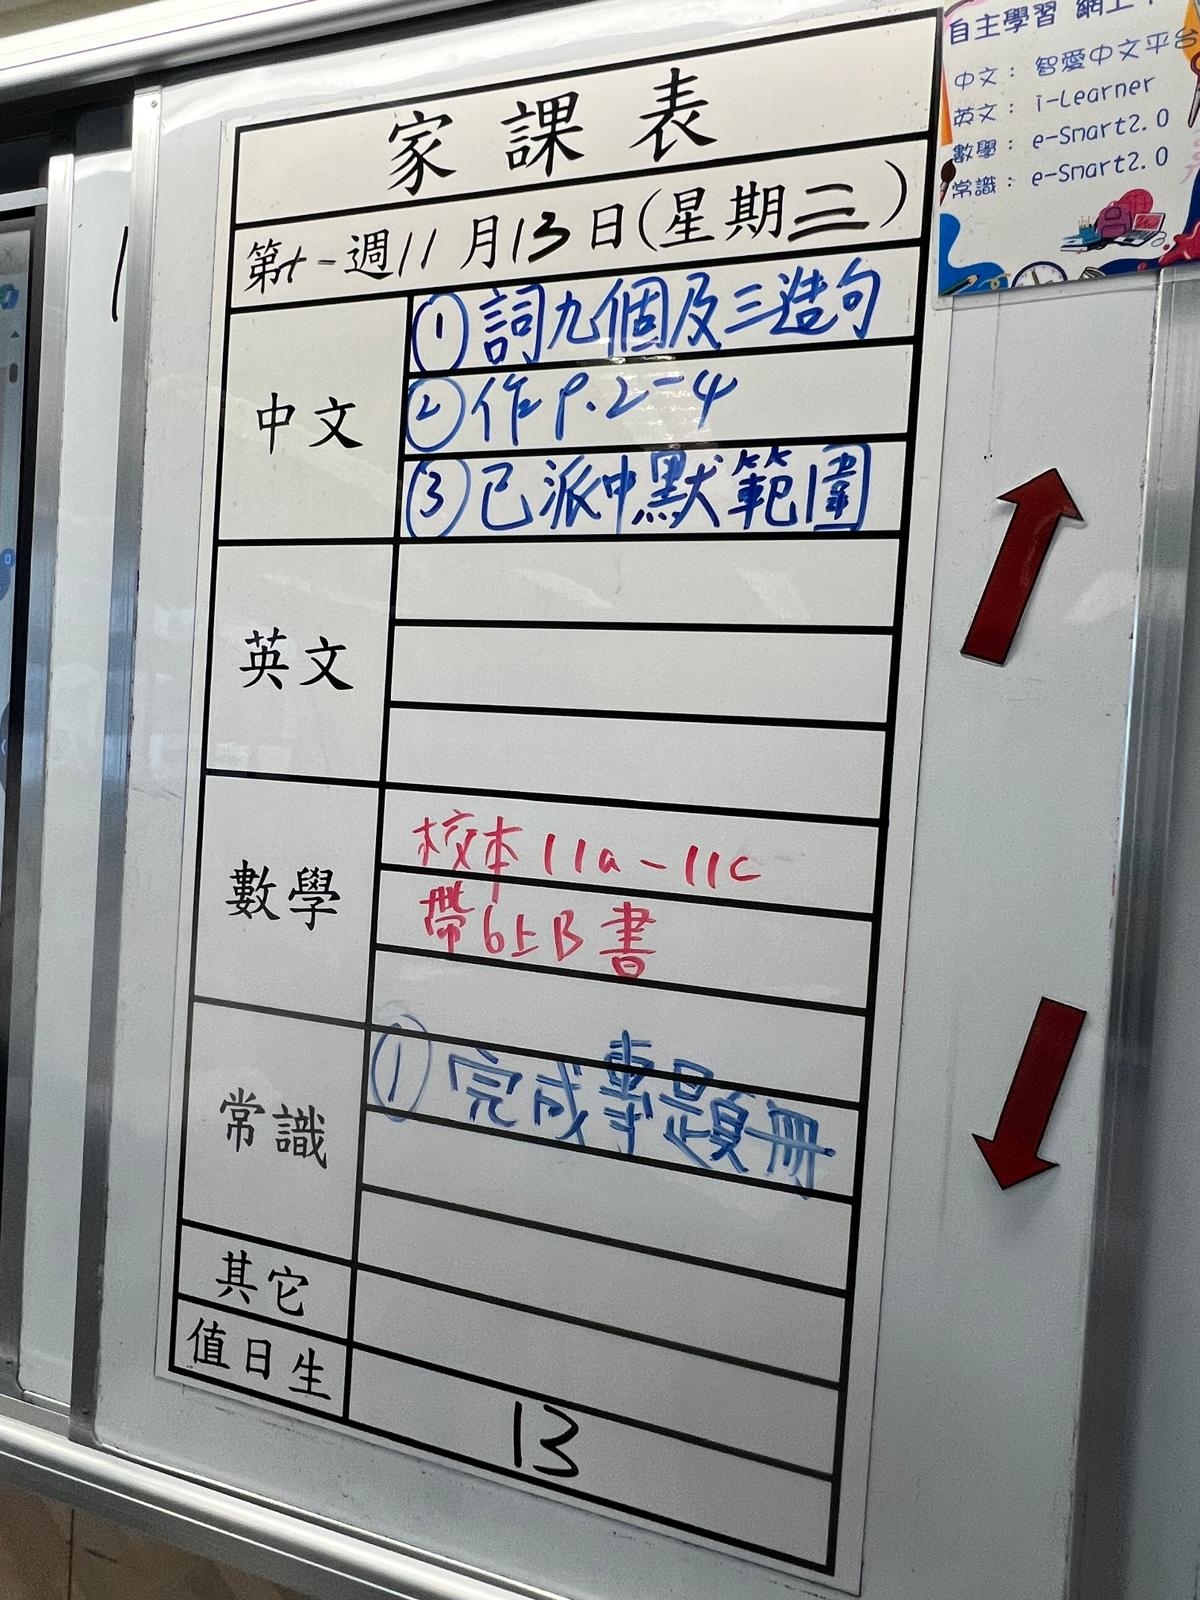 家課表
第十一週11月13日(星期三)
中文
①詞九個及三造句
②作P.2-4
③已派中默範圍
英文
數學
校本11a-11c
帶6上B書
常識
①完成專題冊
其它
值日生
13
自主學習 網上
中文：智愛中文平台
英文：i-Learner
數學：e-Smart2.0
常識：e-Smart2.0